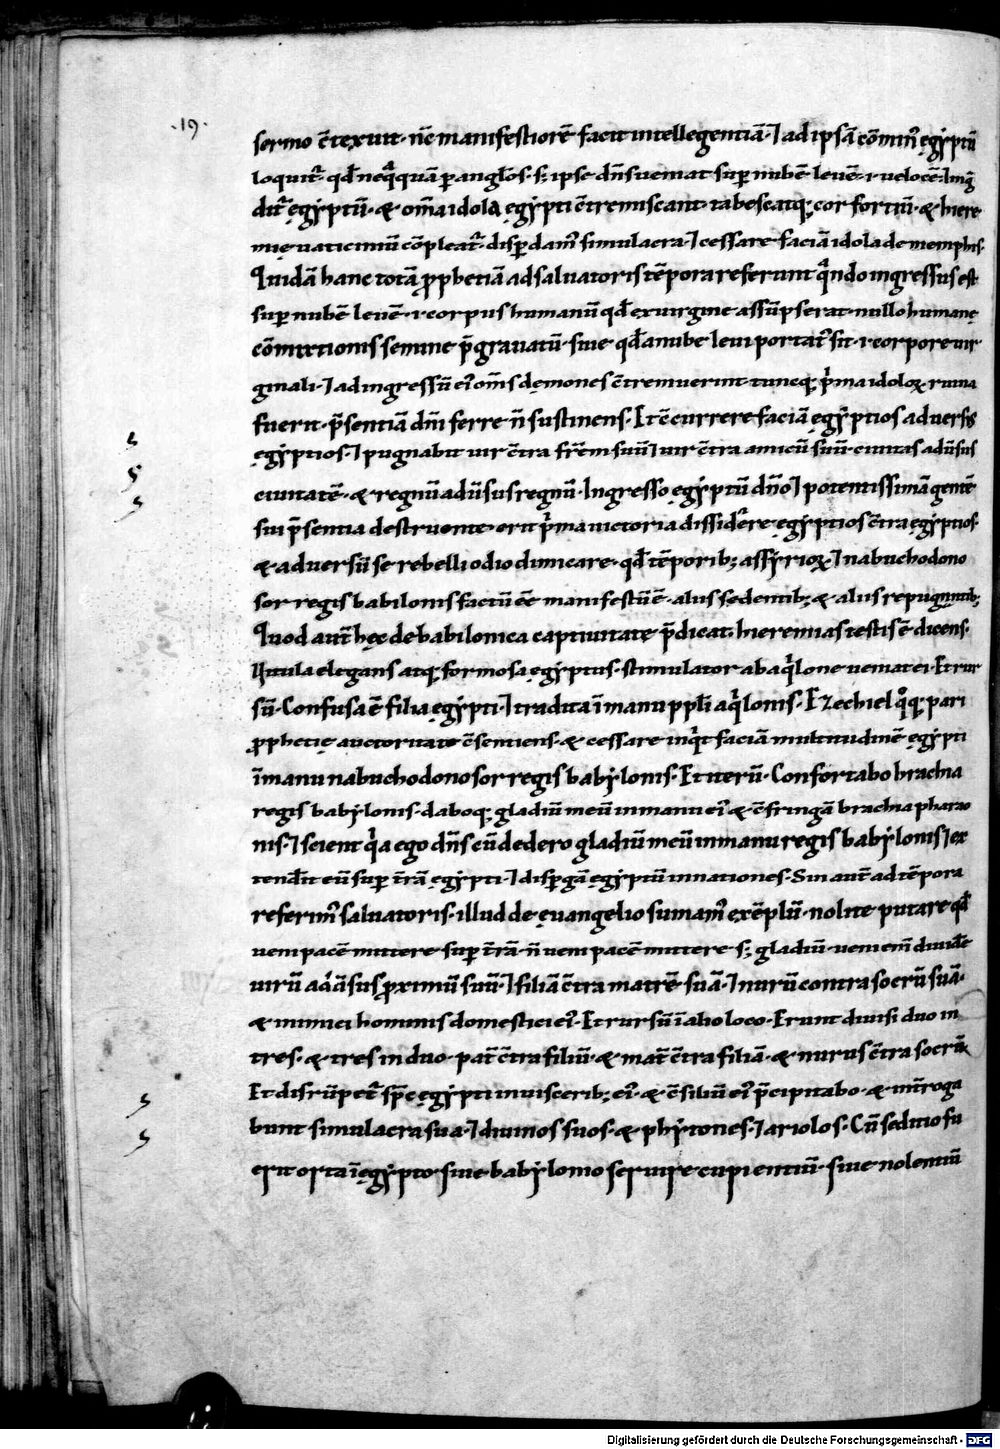 ·19·
sermo c̄texuit· n̄c manifestiorē facit intellegentiā· ⁊ ad ipsā cōminꝰ egẏptū
loquit᷑· qd̄ neq̄quā ꝑ anglōs· sꝫ ipse dn̄s ueniat suꝑ nubē leuē· ⁊ uelocē· Ing̃
dit᷑ ęgẏptū· & om̄a idola ęgẏpti c̄tremiscant· tabescatq; cor fortiū· & hiere
mię uaticiniū cōpleat᷑· disꝑdamꝰ simulacra· ⁊ cessare faciā idola de memphis·
Quidā hanc totā ꝓphetiā ad saluatoris tēpora referunt q̄ndo ingressus est
suꝑ nubē leuē· ⁊ corpus humanū qd̄ ex uirgine assūpserat· nullo humanę
cōmixtionis semine p̄grauatū· siue qd̄ a nube leui portatꝰ sit· ⁊ corpore uir
ginali· ⁊ ad ingressū eiꝰ om̄s demones c̄tremuerint· tuncq; p̄ma idoloꝝ ruina
fuerit· p̄sentiā dn̄i ferre n̄ sustinens· Et c̄currere faciā ęgẏptios aduersus
ęgẏptios· ⁊ pugnabit uir c̄tra fr̄em suū ⁊ uir c̄tra amicū suū· ciuitas adūsus
ciuitatē· & regnū adūsus regnū· Ingresso ęgẏptū dn̄o ⁊ potentissimā gentē
sui p̄sentia destruente· erit p̄ma uictoria dissidēre ęgẏptios c̄tra ęgẏptios·
& aduersū se rebelli odio dimicare· qd̄ tēporib; assẏrioꝝ ⁊ nabuchodono
sor regis babilonis factū e̅e manifestū ē· aliis sedentib; & aliis repugnantib;
Quod aut̄ hęc de babilonica captiuitate p̄dicat· hieremias testis ē dicens·
Uitula elegans atq; formosa ęgẏptus· stimulator ab aq̄lone ueniet ei· Et rur
sū· Confusa ē filia ęgẏpti· ⁊ tradita ī manu ppli aq̄lonis· Ezechiel qͦq; pari
ꝓphetię auctoritate c̄sentiens· & cessare inq̄t faciā multitudinē ęgẏpti
ī manu nabuchodonosor regis babẏlonis· Et iterū· Confortabo brachia
regis babẏlonis· daboq; gladiū meū in manu eiꝰ & c̄fringā brachia pharao
nis· ⁊ scient q̄a ego dn̄s cū dedero gladiū meū in manu regis babẏlonis ⁊ ex
tendit eū suꝑ t̄rā ęgẏpti· ⁊ disꝑgā ęgẏptū in nationes· Sin aut̄ ad tēpora
referimꝰ saluatoris· illud de ęuangelio sumamꝰ exēplū· nolite putare qd̄
ueni pacē mittere suꝑ t̄rā· n̄ ueni pacē mittere sꝫ gladiū· ueni eni̅ diuidēre
uirū adūsus ꝓximū suū· ⁊ filiā c̄tra matrē suā· ⁊ nurū contra socrū suā·
& inimici hominis domestici eiꝰ· Et rursū ī alio loco· Erunt diuisi duo in
tres· & tres in duo· pat̄ c̄tra filiū· & mat̄ c̄tra filiā· & nurus c̄tra socrū·
Et disrūpet᷑ sp̄c ęgẏpti in uiscerib; eiꝰ· & c̄siliū eiꝰ p̄cipitabo· & int̄roga
bunt simulacra sua· ⁊ diuinos suos· & phẏtones· ⁊ ariolos· Cū seditio fu
erit orta ī ęgẏpto· siue babẏlonio seruire cupientiū· siue nolentiū
Digitalisierung gefördert durch die Deutsche Forschungsgemeinschaft - DFG